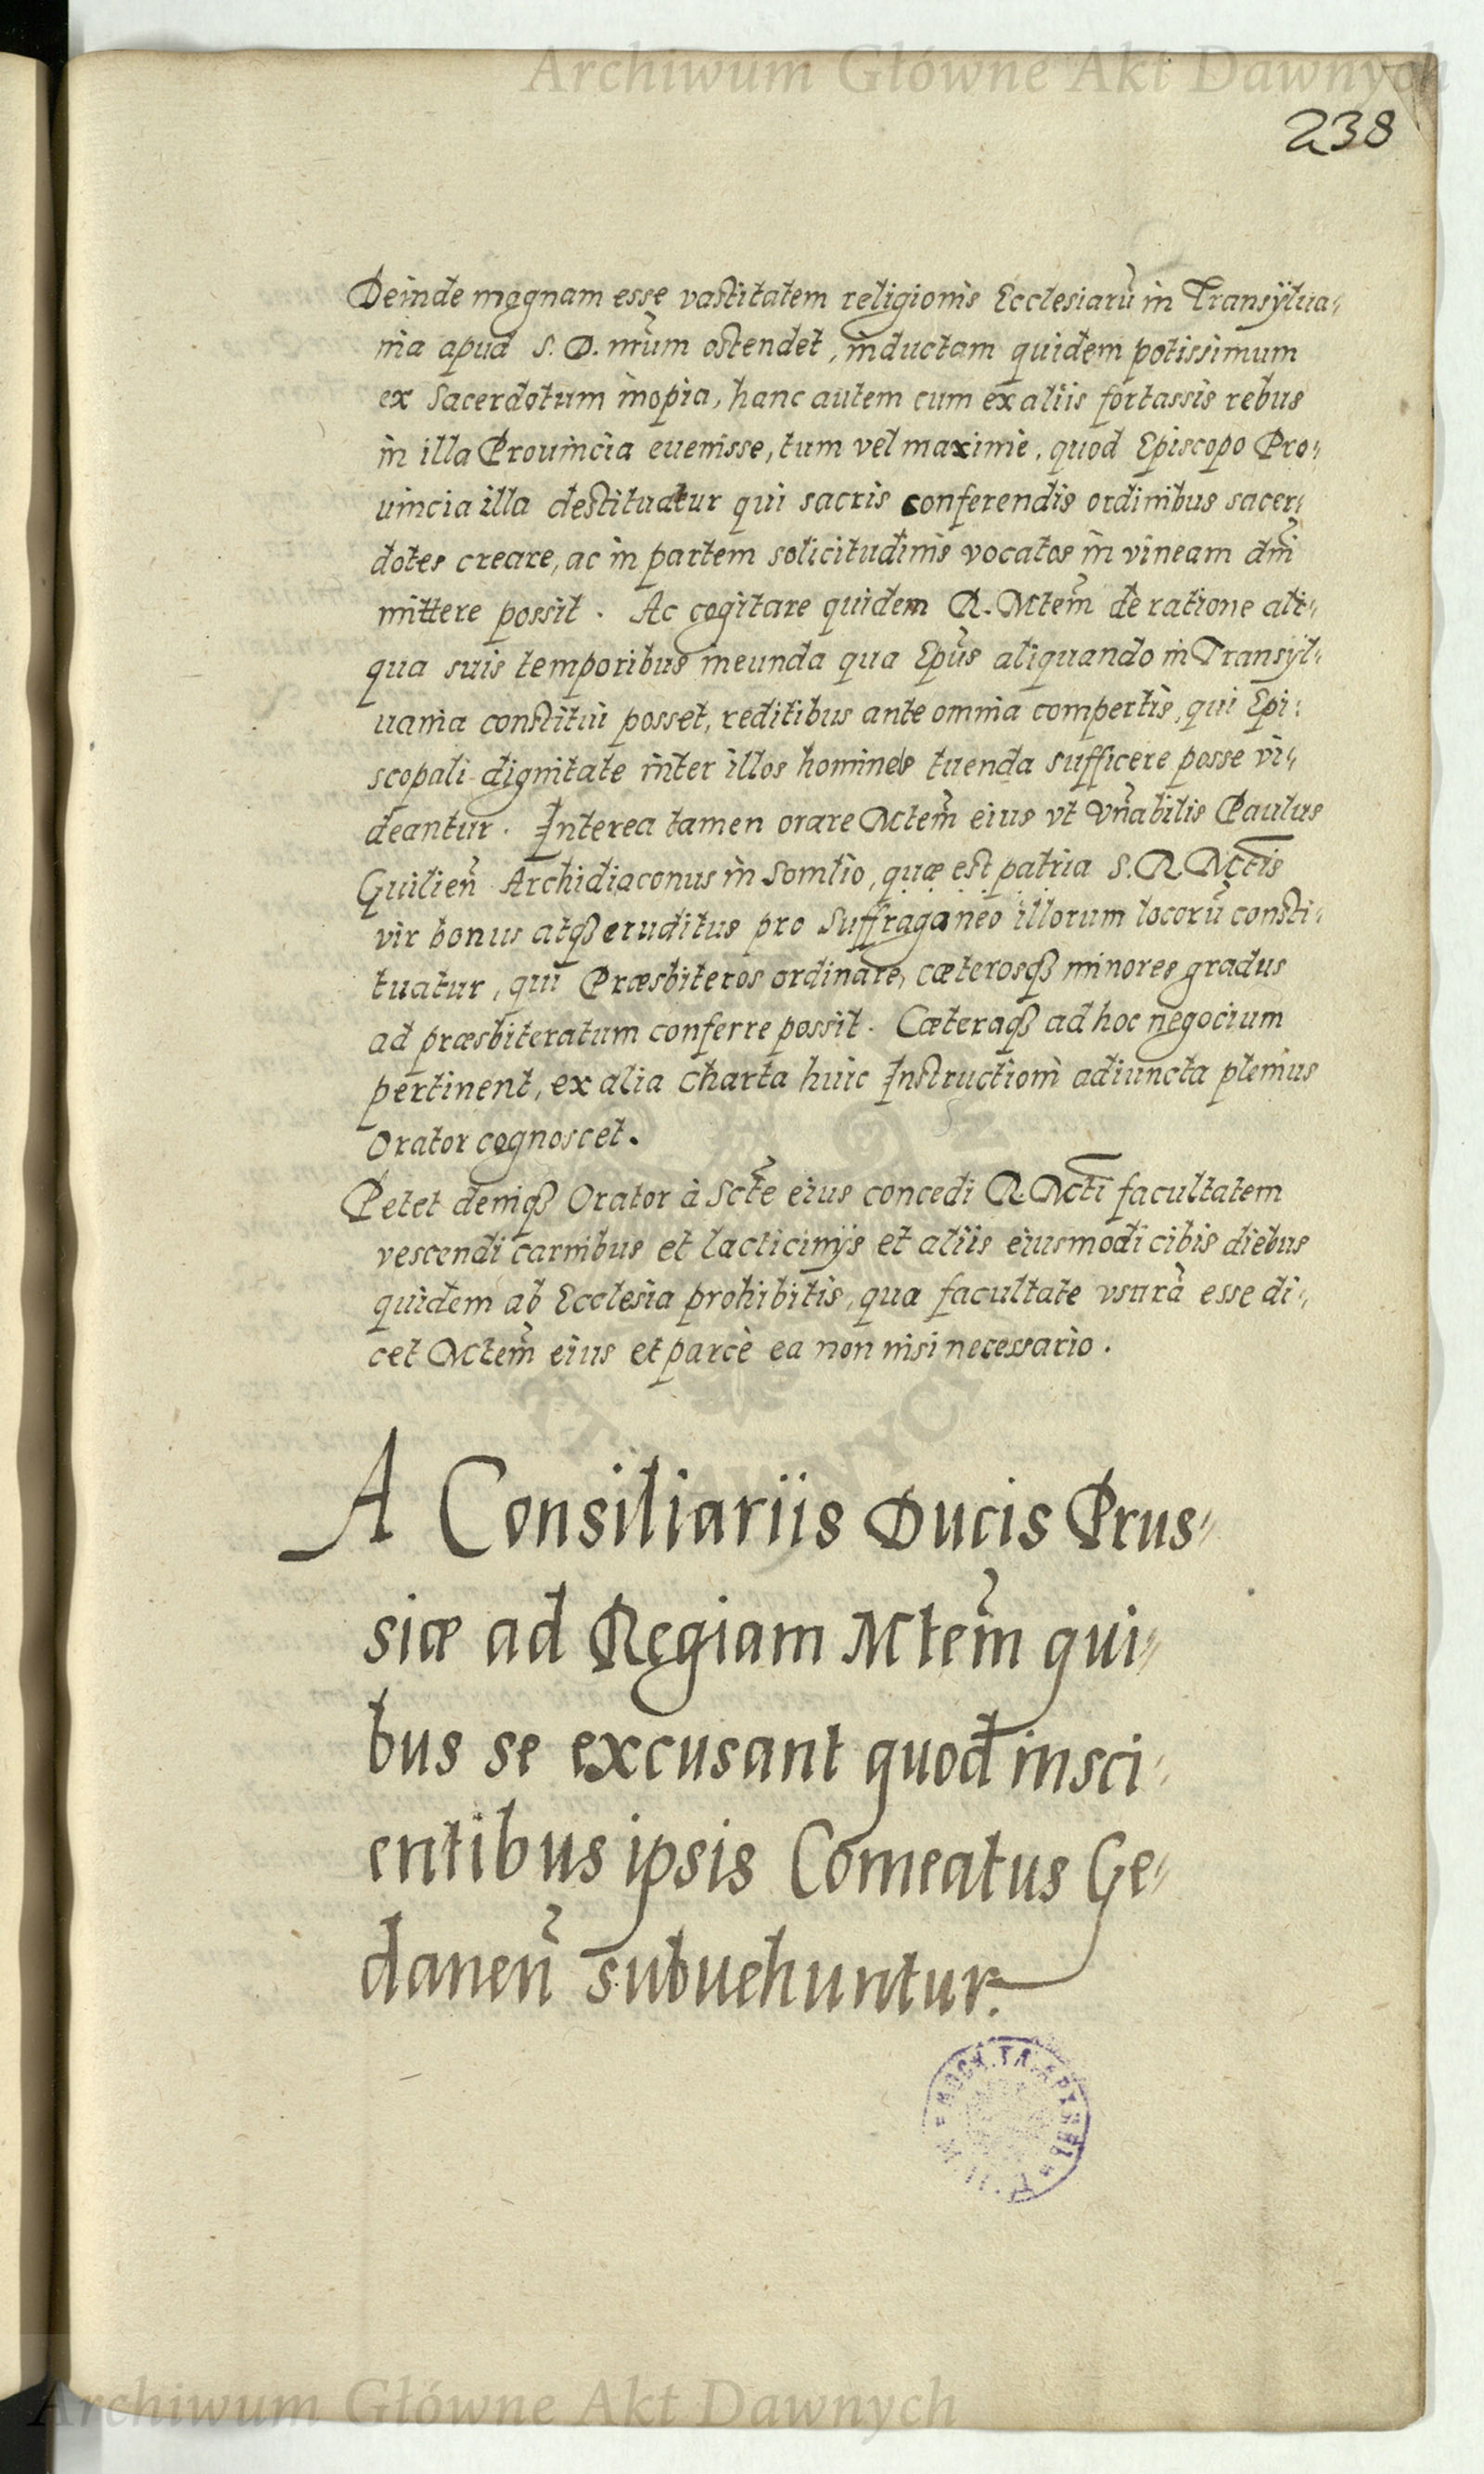 Archiwum Główne Akt Dawnych
238
Deinde magnam esse vastitatem religionis Ecclesiarũ in Transylua-
nia apud S. D. nr̃um ostendet, inductam quidem potissimum
ex Sacerdotum inopia, hanc autem cum ex aliis fortassis rebus
in illa Prouincia euenisse, tum vel maxime, quod Episcopo Pro-
uincia illa destituatur qui sacris conferendis ordinibus sacer-
dotes creare, ac in partem solicitudinis vocatos in vineam dm̃i
mittere possit. Ac cogitare quidem R. Mtem̃ de ratione ali-
qua suis temporibus ineunda qua Ep̃us aliquando in Transyl-
uania constitui posset, reditibus ante omnia compertis, qui Epi-
scopali dignitate inter illos homines tuenda sufficere posse vi-
deantur. Interea tamen orare Mtem̃ eius vt Vñabilis Paulus
Guilień Archidiaconus in Somlio, quæ est patria S. R. Mctis
vir bonus atqȝ eruditus pro Suffraganeo illorum locorũ consti-
tuatur, qui Præsbiteros ordinare, cæterosqȝ minores gradus
ad præsbiteratum conferre possit. Cæteraqȝ ad hoc negocium
pertinent, ex alia charta huic Instructioni adiuncta plenius
Orator cognoscet.
Petet deniqȝ Orator à Sct̃e eius concedi R. Mcti facultatem
vescendi carnibus et lacticinijs et aliis eiusmodi cibis diebus
quidem ab Ecclesia prohibitis, qua facultate vsurã esse di-
cet Mtem̃ eius et parcè ea non nisi necessario.
A Consiliariis Ducis Prus-
siæ ad Regiam Mtem̃ qui-
bus se excusant quod insci-
entibus ipsis Comeatus Ge-
daneñ subuehuntur.
Archiwum Główne Akt Dawnych